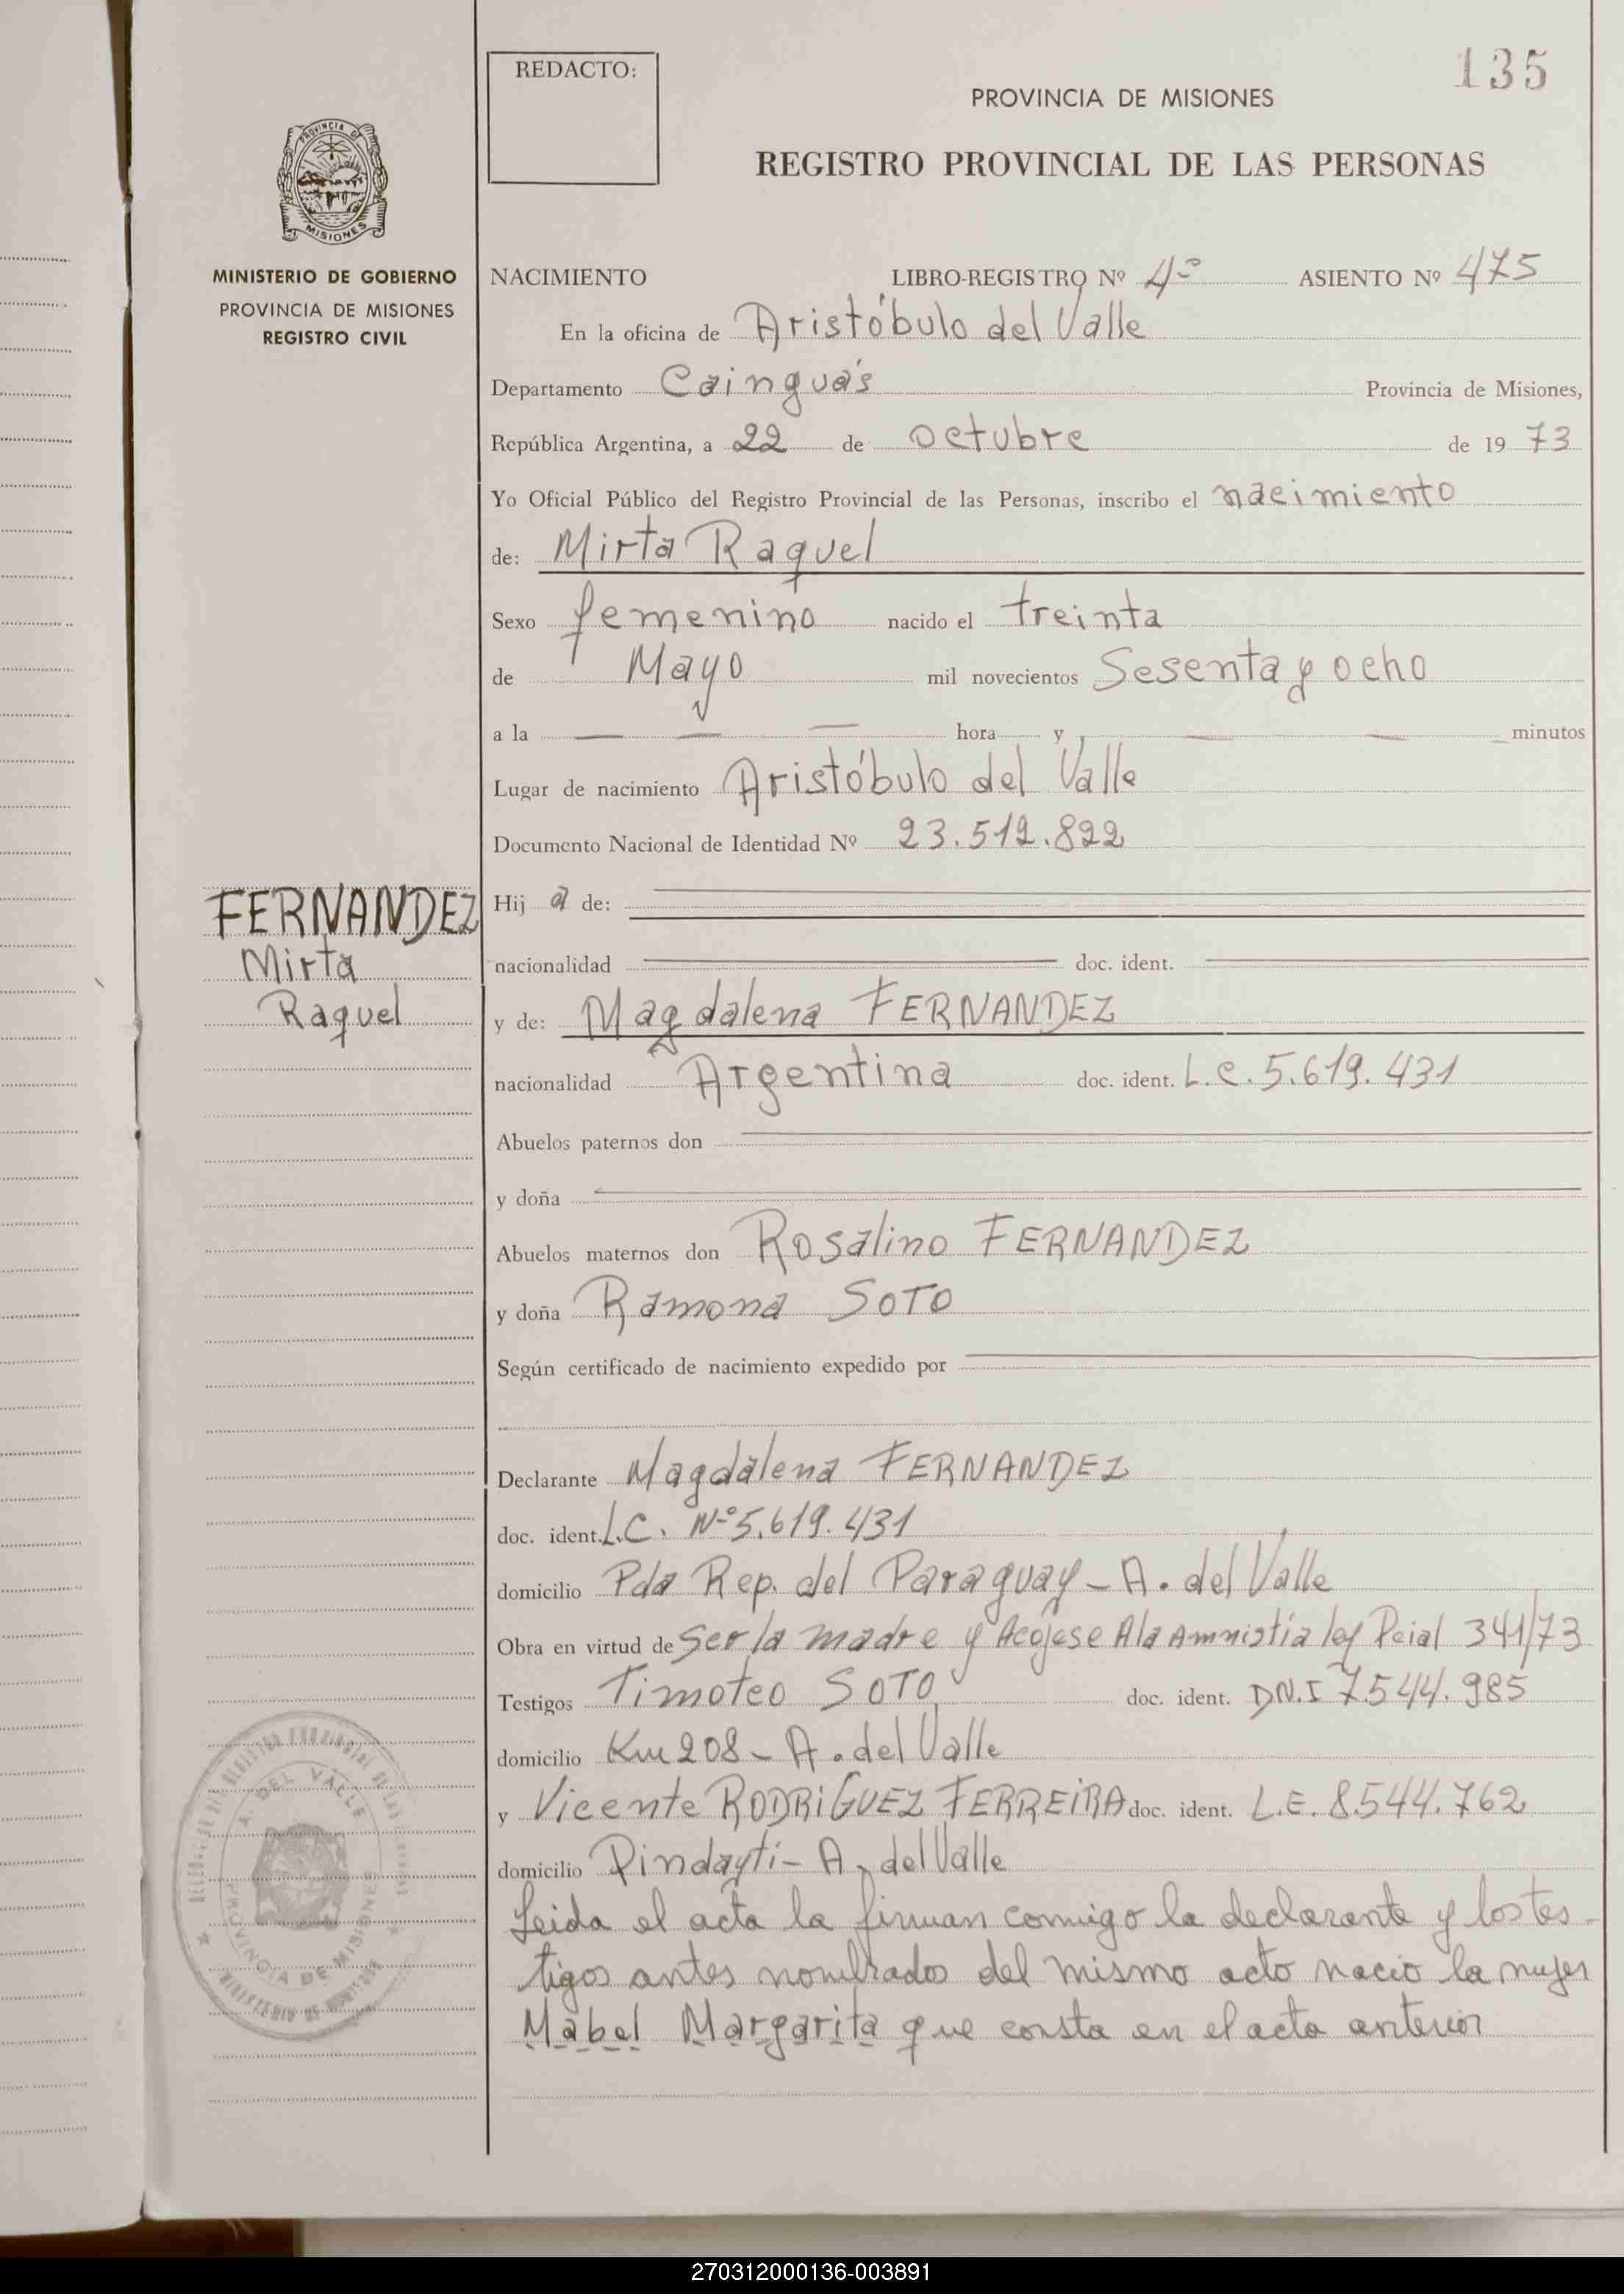 135
REDACTO:
PROVINCIA DE MISIONES
REGISTRO PROVINCIAL DE LAS PERSONAS
PROVINCIA DE
MISIONES
MINISTERIO DE GOBIERNO
PROVINCIA DE MISIONES
REGISTRO CIVIL
NACIMIENTO LIBRO-REGISTRO Nº 4º ASIENTO Nº 475
En la oficina de Aristóbulo del Valle
Departamento Cainguás Provincia de Misiones,
República Argentina, a 22 de octubre de 19 73
Yo Oficial Público del Registro Provincial de las Personas, inscribo el nacimiento
de: Mirta Raquel
Sexo femenino nacido el treinta
de Mayo mil novecientos Sesenta y ocho
a la — — — hora y — — minutos
Lugar de nacimiento Aristóbulo del Valle
Documento Nacional de Identidad Nº 23.512.822
FERNANDEZ
Mirta
Raquel
Hij a de:
nacionalidad doc. ident.
y de: Magdalena FERNANDEZ
nacionalidad Argentina doc. ident. L.C. 5.619.431
Abuelos paternos don
y doña
Abuelos maternos don Rosalino FERNANDEZ
y doña Ramona SOTO
Según certificado de nacimiento expedido por
Declarante Magdalena FERNANDEZ
doc. ident. L.C. Nº 5.619.431
domicilio Pda Rep. del Paraguay - A. del Valle
Obra en virtud de Ser la madre y Acójese A la Amnistía ley Pcial 341/73
Testigos Timoteo SOTO doc. ident. DN.I 7.544.985
domicilio Km 208 - A. del Valle
y Vicente RODRIGUEZ FERREIRA doc. ident. L.E. 8.544.762
domicilio Pindaytí - A. del Valle
Leida el acta la firman conmigo la declarante y los tes-
tigos antes nombrados del mismo acto nacio la mujer
Mabel Margarita que consta en el acta anterior
A. DEL VALLE
PROVINCIA DE MISIONES
270312000136-003891